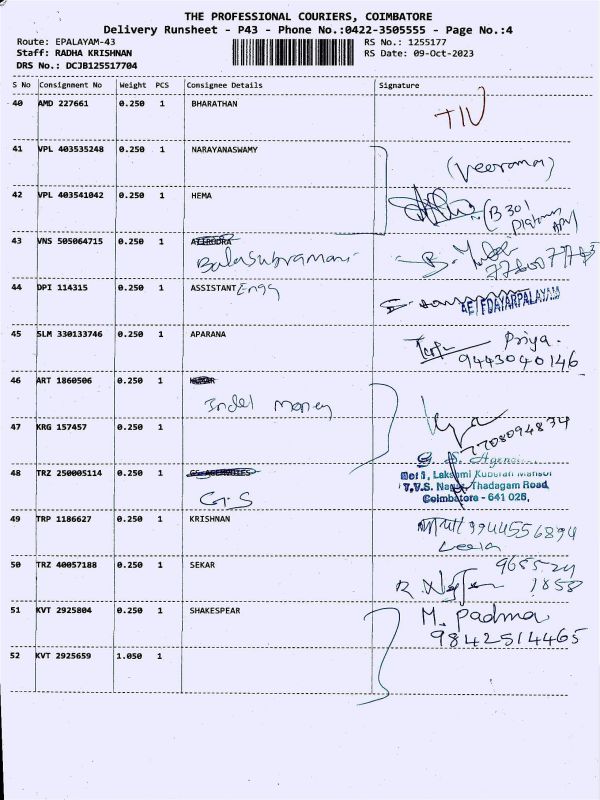 THE PROFESSIONAL COURIERS, COIMBATORE
Delivery Runsheet - P43 - Phone No.:0422-3505555 - Page No.:4
Route: EPALAYAM-43
RS No.: 1255177
Staff: RADHA KRISHNAN
RS Date: 09-Oct-2023
DRS No.: DCJB125517704
S No Consignment No Weight PCS Consignee Details Signature
40 AMD 227661 0.250 1 BHARATHAN
41 VPL 403535248 0.250 1 NARAYANASWAMY
42 VPL 403541042 0.250 1 HEMA
(B 301
43 VNS 505064715 0.250 1
Balasubramani
44 DPI 114315 0.250 1 ASSISTANT Engg
45 SLM 330133746 0.250 1 APARANA Priya.
9443040146
46 ART 1860506 0.250 1
Indel money
47 KRG 157457 0.250 1
7708094834
G. S. Agenci
48 TRZ 250005114 0.250 1 GS AGENCIES
G.S
Lakshmi Kubaran Mansol
V.V.S. Nagar, Thadagam Road,
Coimbatore - 641 025,
49 TRP 1186627 0.250 1 KRISHNAN 9944556894
Leela
50 TRZ 40057188 0.250 1 SEKAR
1858
51 KVT 2925804 0.250 1 SHAKESPEAR M. Padma
9842514465
52 KVT 2925659 1.050 1